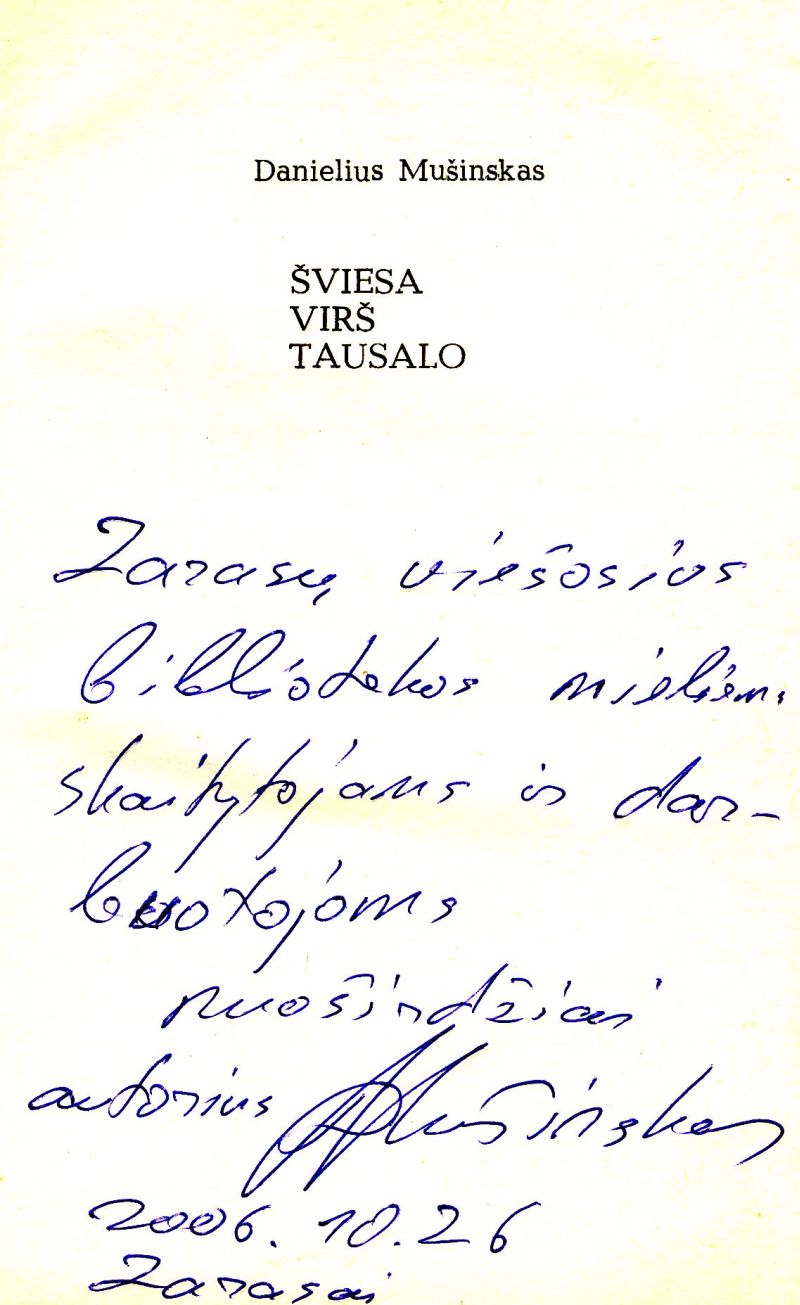 Danielius Mušinskas
ŠVIESA
VIRŠ
TAUSALO
Zarasų viešosios
bibliotekos mieliems
skaitytojams ir dar-
buotojams
nuoširdžiai
autorius DMušinskas
2006.10.26
Zarasai